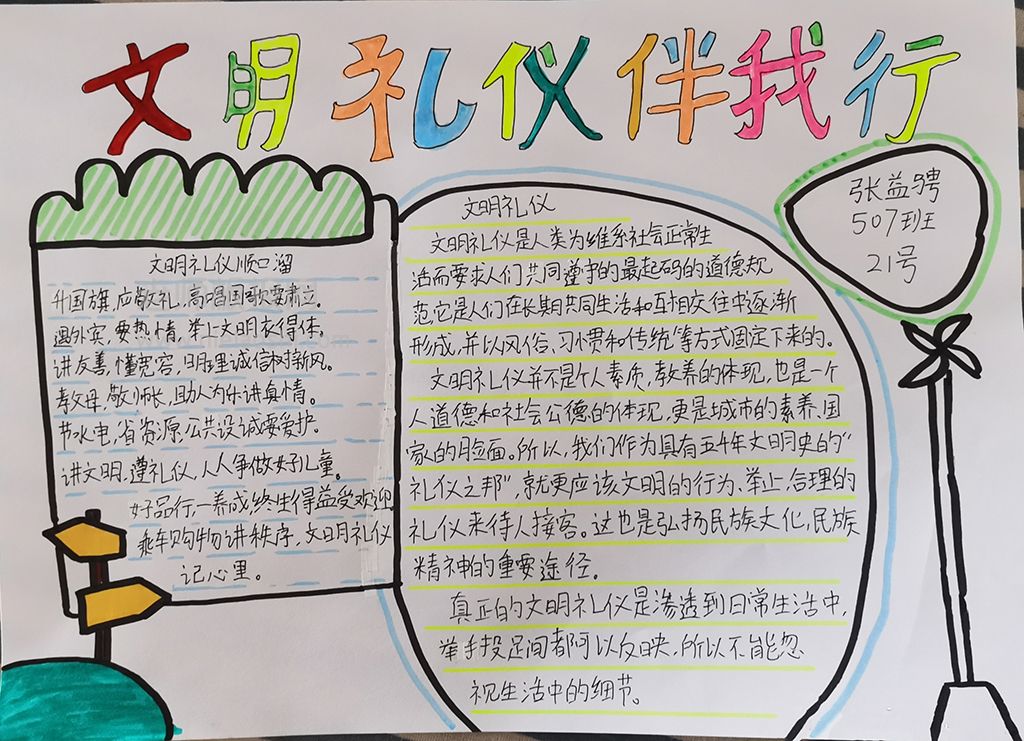 文明礼仪伴我行
张益骋
507班
21号
文明礼仪顺口溜
升国旗,应敬礼,高唱国歌要肃立。
遇外宾,要热情,举止文明衣得体。
讲友善,懂宽容,明理诚信树新风。
孝父母,敬师长,助人为乐讲真情。
节水电,省资源,公共设诚要爱护。
讲文明,遵礼仪,人人争做好儿童。
好品行一养成,终生得益受欢迎
乘车购物讲秩序,文明礼仪
记心里。
文明礼仪
文明礼仪是人类为维系社会正常生
活而要求人们共同遵守的最起码的道德规
范,它是人们在长期共同生活和互相交往中逐渐
形成,并以风俗、习惯和传统等方式固定下来的。
文明礼仪并不是个人素质,教养的体现,也是一个
人道德和社会公德的体现,更是城市的素养、国
家的脸面。所以,我们作为具有五千年文明史的“
礼仪之邦”,就更应该文明的行为、举止,合理的
礼仪来待人接客。这也是弘扬民族文化,民族
精神的重要途径。
真正的文明礼仪是渗透到日常生活中,
举手投足间都可以反映,所以不能忽
视生活中的细节。